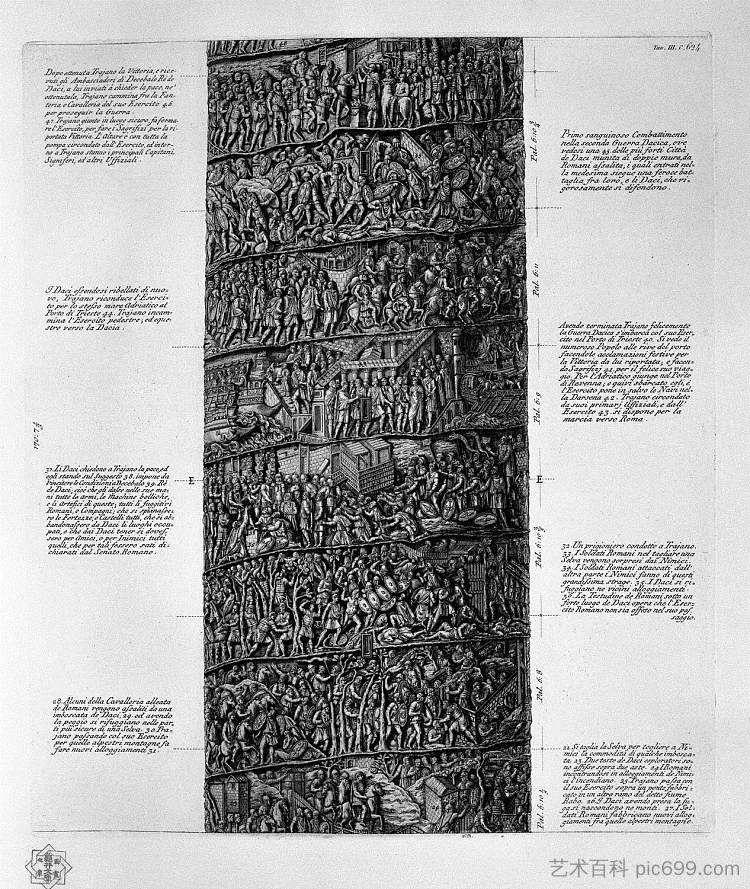 Tav. III. C. 624
Dopo ottenuta Trajano la Vittoria, e rice-
vuti gli Ambasciadori di Decebalo Rè de
Daci, a lui inviati a chieder la pace, nè
ottenutala, Trajano cammina fra la Fan-
teria e Cavalleria del suo Esercito 46.
per proseguir la Guerra.
47. Trajano giunto in luogo sicuro, fa forma-
re l'Esercito, per fare i Sagrifizj per la ri-
portata Vittoria. E l'Altare è con tutta la
pompa circondato dall'Esercito, ed intor-
no a Trajano stanno i principali Capitani,
Signiferi, ed altri Uffiziali.
Primo sanguinoso Combattimento
nella seconda Guerra Dacica, ove
vedesi una 45. delle più forti Città
de Daci munita di doppie mura, da
Romani assalita, i quali entrati nel-
la medesima siegue una feroce bat-
taglia fra loro, e li Daci, che vi-
gorosamente si difendono.
I Daci essendosi ribellati di nuo-
vo, Trajano riconduce l'Eserci-
to per lo stesso mare Adriatico al
Porto di Trieste 44. Trajano incam-
mina l'Esercito pedestre, ed eque-
stro verso la Dacia.
Avendo terminata Trajano felicemente
la Guerra Dacica s'imbarca col suo Eser-
cito nel Porto di Trieste 40. Si vede il
numeroso Popolo alle rive del porto
facendole acclamazioni festive per
la Vittoria da lui riportata; e facen-
do Sagrifizj 41. per il felice suo viag-
gio. Per l'Adriatico giunge nel Porto
di Ravenna; e quivi sbarcato egli, è
l'Esercito pone in salvo le Navi nel-
la Darsena 42. Trajano circondato
da suoi primarj Uffiziali, e dall'
Esercito 43. si dispone per la
marcia verso Roma.
37. Li Daci chiedono a Trajano la pace, ed
egli stando sul Suggesto 38. impone da
Vincitore le Condizioni a Decebalo 39. Rè
de Daci; cioè che gli desse nelle sue ma-
ni tutte le armi, le Machine belliche,
e li Artefici di queste; tutti li fuggitivi
Romani, e Compagni; che si spianasse-
ro le Fortezze, e Castelli tutti, che si ab-
bandonassero da Daci li luoghi occu-
pati, e che dai Daci tener si doves-
sero per Amici, o per Inimici tutti
quelli, che per tali fossero stati di-
chiarati dal Senato Romano.
E
E
32. Un prigioniero condotto a Trajano.
33. I Soldati Romani nel tagliare una
Selva vengono sorpresi dai Nimici.
34. I Soldati Romani attaccati dall'
altra parte i Nimici fanno di questi
grandissima strage. 35. I Daci si ri-
fuggiano ne vicini alloggiamenti.
36. La Testudine de Romani sotto un
forte luogo de Daci opera che l'Eser-
cito Romano non sia offeso nel suo pas-
saggio.
28. Alcuni della Cavalleria alleata
de Romani vengono assaliti da una
imboscata de Daci, 29. ed avendo
la peggio si rifuggiano nelle par-
ti più sicure di una Selva. 30. Tra-
jano passando col suo Esercito
per quelle alpestri montagne fa
fare nuovi alloggiamenti 31.
21. Si taglia la Selva per togliere a Ni-
mici la commodità di qualche imbosca-
ta. 23. Due teste de Daci esploratori so-
no affisse sopra due aste. 24. I Romani
incontrandosi in alloggiamenti de Nimi-
ci l'incendiano. 25. Trajano passa con
il suo Esercito sopra un ponte, fabbri-
cato in un altro ramo del detto fiume
Rabo. 26. I Daci avendo presa la fu-
ga si nascondono ne monti. 27. I Sol-
dati Romani fabbricano nuovi allog-
giamenti fra quelle alpestri montagne.
Pal. 6. 11
Pal. 6. 9
Pal. 6. 8
艺术百科 pic699.com